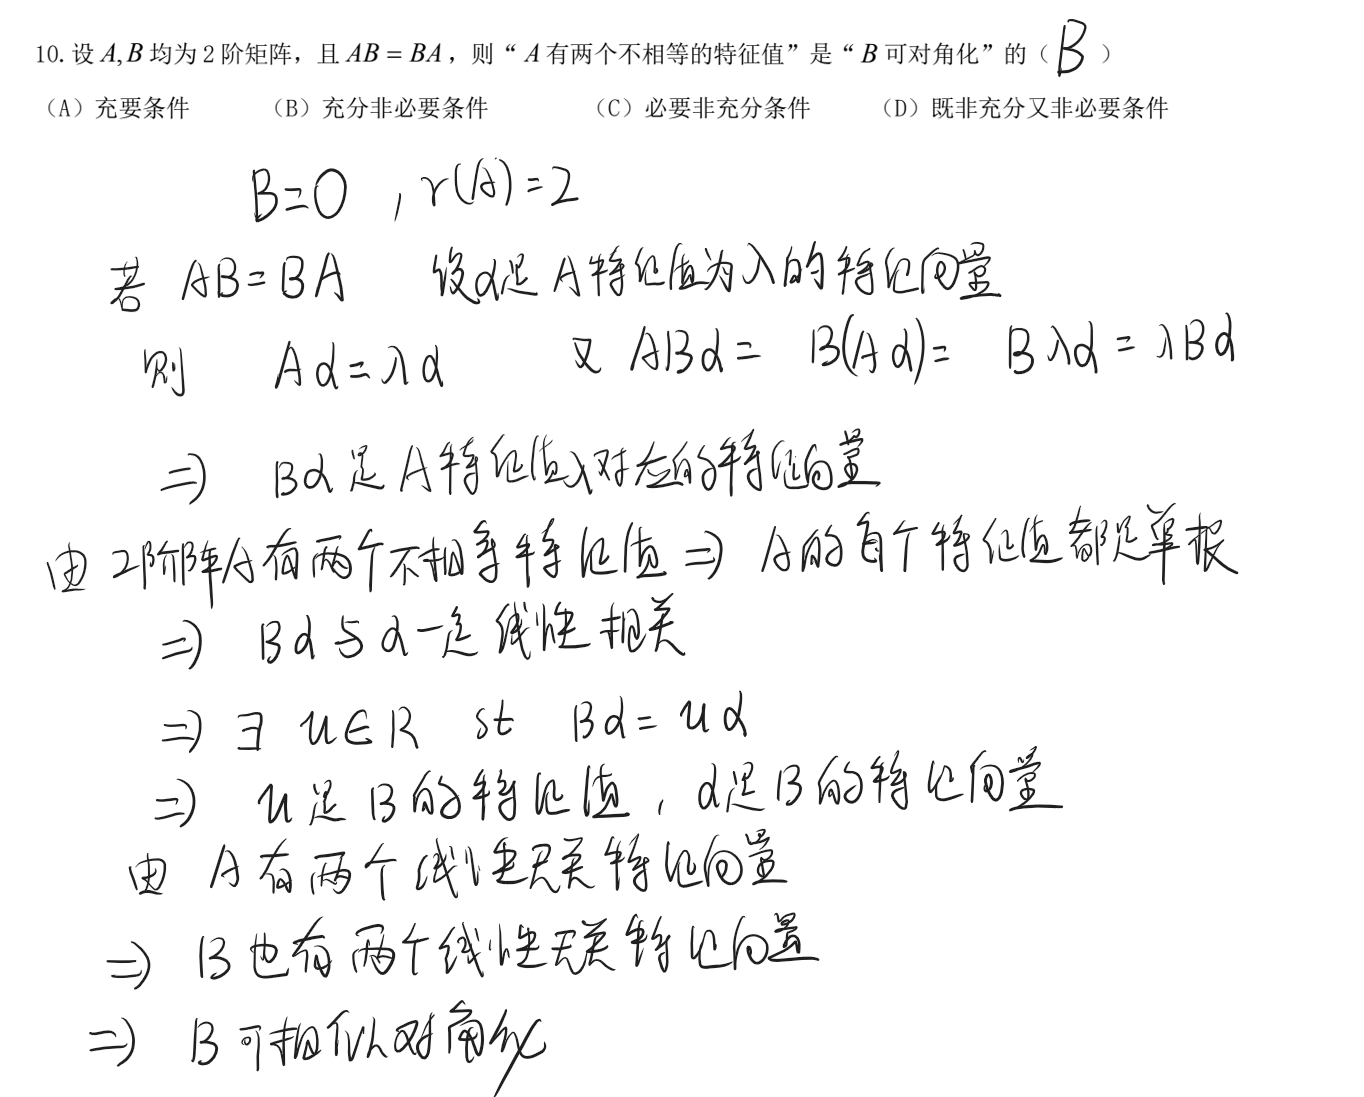 10. 设 A, B 均为 2 阶矩阵，且 AB = BA，则“ A 有两个不相等的特征值”是“ B 可对角化”的（ B ）
（A）充要条件 （B）充分非必要条件 （C）必要非充分条件 （D）既非充分又非必要条件
B=0 , r(A)=2
若 AB=BA 设α是A特征值为λ的特征向量
则 Aα=λα 又 ABα= B(Aα)= Bλα=λBα
⇒ Bα是A特征值λ对应的特征向量
由2阶阵A有两个不相等特征值⇒ A的每个特征值都是单根
⇒ Bα与α一定线性相关
⇒ ∃ u∈R st Bα=uα
⇒ u是B的特征值, α是B的特征向量
由 A有两个线性无关特征向量
⇒ B也有两个线性无关特征向量
⇒ B可相似对角化